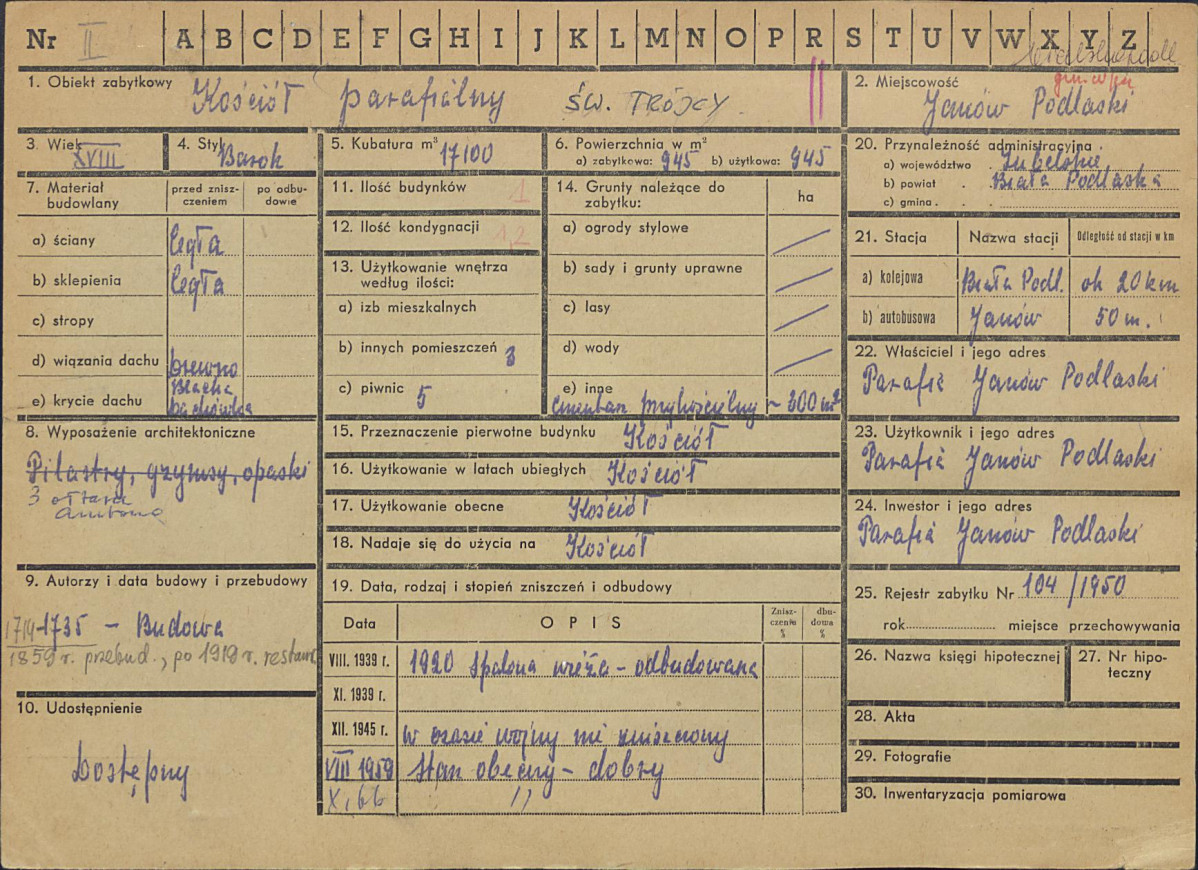 Nr II A B C D E F G H I J K L M N O P R S T U V W X Y Z
1. Obiekt zabytkowy Kościół parafialny ŚW. TRÓJCY
2. Miejscowość
Janów Podlaski
3. Wiek XVIII
4. Styl Barok
5. Kubatura m³ 17100
6. Powierzchnia w m²
a) zabytkowa: 945 b) użytkowa: 945
7. Materiał budowlany
przed zniszczeniem
po odbudowie
a) ściany cegła
b) sklepienia cegła
c) stropy
d) wiązania dachu drewno
e) krycie dachu Blacha
dachówka
8. Wyposażenie architektoniczne
Pilastry, gzymsy, opaski
3 ołtarze
ambona
9. Autorzy i data budowy i przebudowy
1714-1735 – Budowa
1859 r. przebud., po 1918 r. restaur.
10. Udostępnienie
Dostępny
11. Ilość budynków 1
12. Ilość kondygnacji 1,2
13. Użytkowanie wnętrza
według ilości:
a) izb mieszkalnych
b) innych pomieszczeń 3
c) piwnic 5
14. Grunty należące do
zabytku:
ha
a) ogrody stylowe
b) sady i grunty uprawne
c) lasy
d) wody
e) inne
cmentarz przykościelny ~ 300 m²
15. Przeznaczenie pierwotne budynku Kościół
16. Użytkowanie w latach ubiegłych Kościół
17. Użytkowanie obecne Kościół
18. Nadaje się do użycia na Kościół
19. Data, rodzaj i stopień zniszczeń i odbudowy
Data OPIS Zniszczenie % dbudowa %
VIII. 1939 r. 1920 spalona wieża – odbudowana
XI. 1939 r.
XII. 1945 r. w czasie wojny nie zniszczony
VIII 1959 stan obecny – dobry
X, 66 "
20. Przynależność administracyjna
a) województwo Lubelskie
b) powiat Biała Podlaska
c) gmina
21. Stacja Nazwa stacji Odległość od stacji w km
a) kolejowa Biała Podl. ok 20 km
b) autobusowa Janów 50 m.
22. Właściciel i jego adres
Parafia Janów Podlaski
23. Użytkownik i jego adres
Parafia Janów Podlaski
24. Inwestor i jego adres
Parafia Janów Podlaski
25. Rejestr zabytku Nr 104/1950
rok miejsce przechowywania
26. Nazwa księgi hipotecznej
27. Nr hipoteczny
28. Akta
29. Fotografie
30. Inwentaryzacja pomiarowa